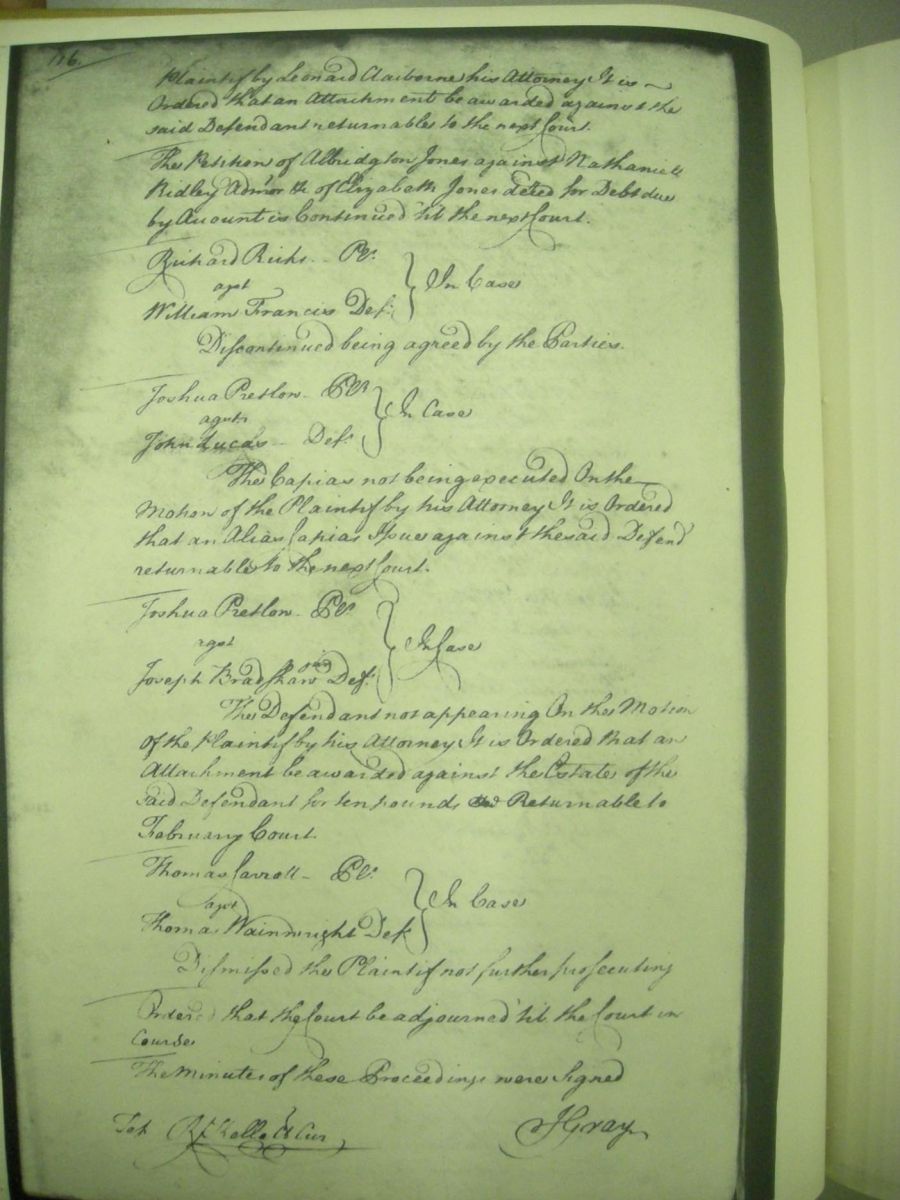 116.
Plaintif by Leonard Claiborne his Attorney It is
Ordered that an Attachment be awarded against the
said Defendant returnable to the next Court.
The Petition of Albridgton Jones against Nathaniell
Ridley Admor &c of Elizabeth Jones deced for Debt due
by Account is Continued 'til the next Court.
Richard Ricks Plt.
agst
In Case
William Francis Def.
Discontinued being agreed by the Parties.
Joshua Pretlow Plt
agst
In Case
John Lucas Def.
The Capias not being executed On the
Motion of the Plaintif by his Attorney It is Ordered
that an Alias Capias Issue against the said Defend
returnable to the next Court.
Joshua Pretlow Plt
agst
In Case
Joseph Bradshaw Def.
The Defendant not appearing On the Motion
Of the Plaintif by his Attorney It is Ordered that an
Attachment be awarded against the Estate of the
said Defendant for ten pounds Returnable to
February Court.
Thomas Carroll Plt.
agst
In Case
Thomas Wainwright Def.
Dismissed the Plaintif not further prosecuting
Ordered that the Court be adjourned 'til the Court in
Course
The Minutes of these Proceedings were Signed
Test R. Kello Cl Cur
J Gray